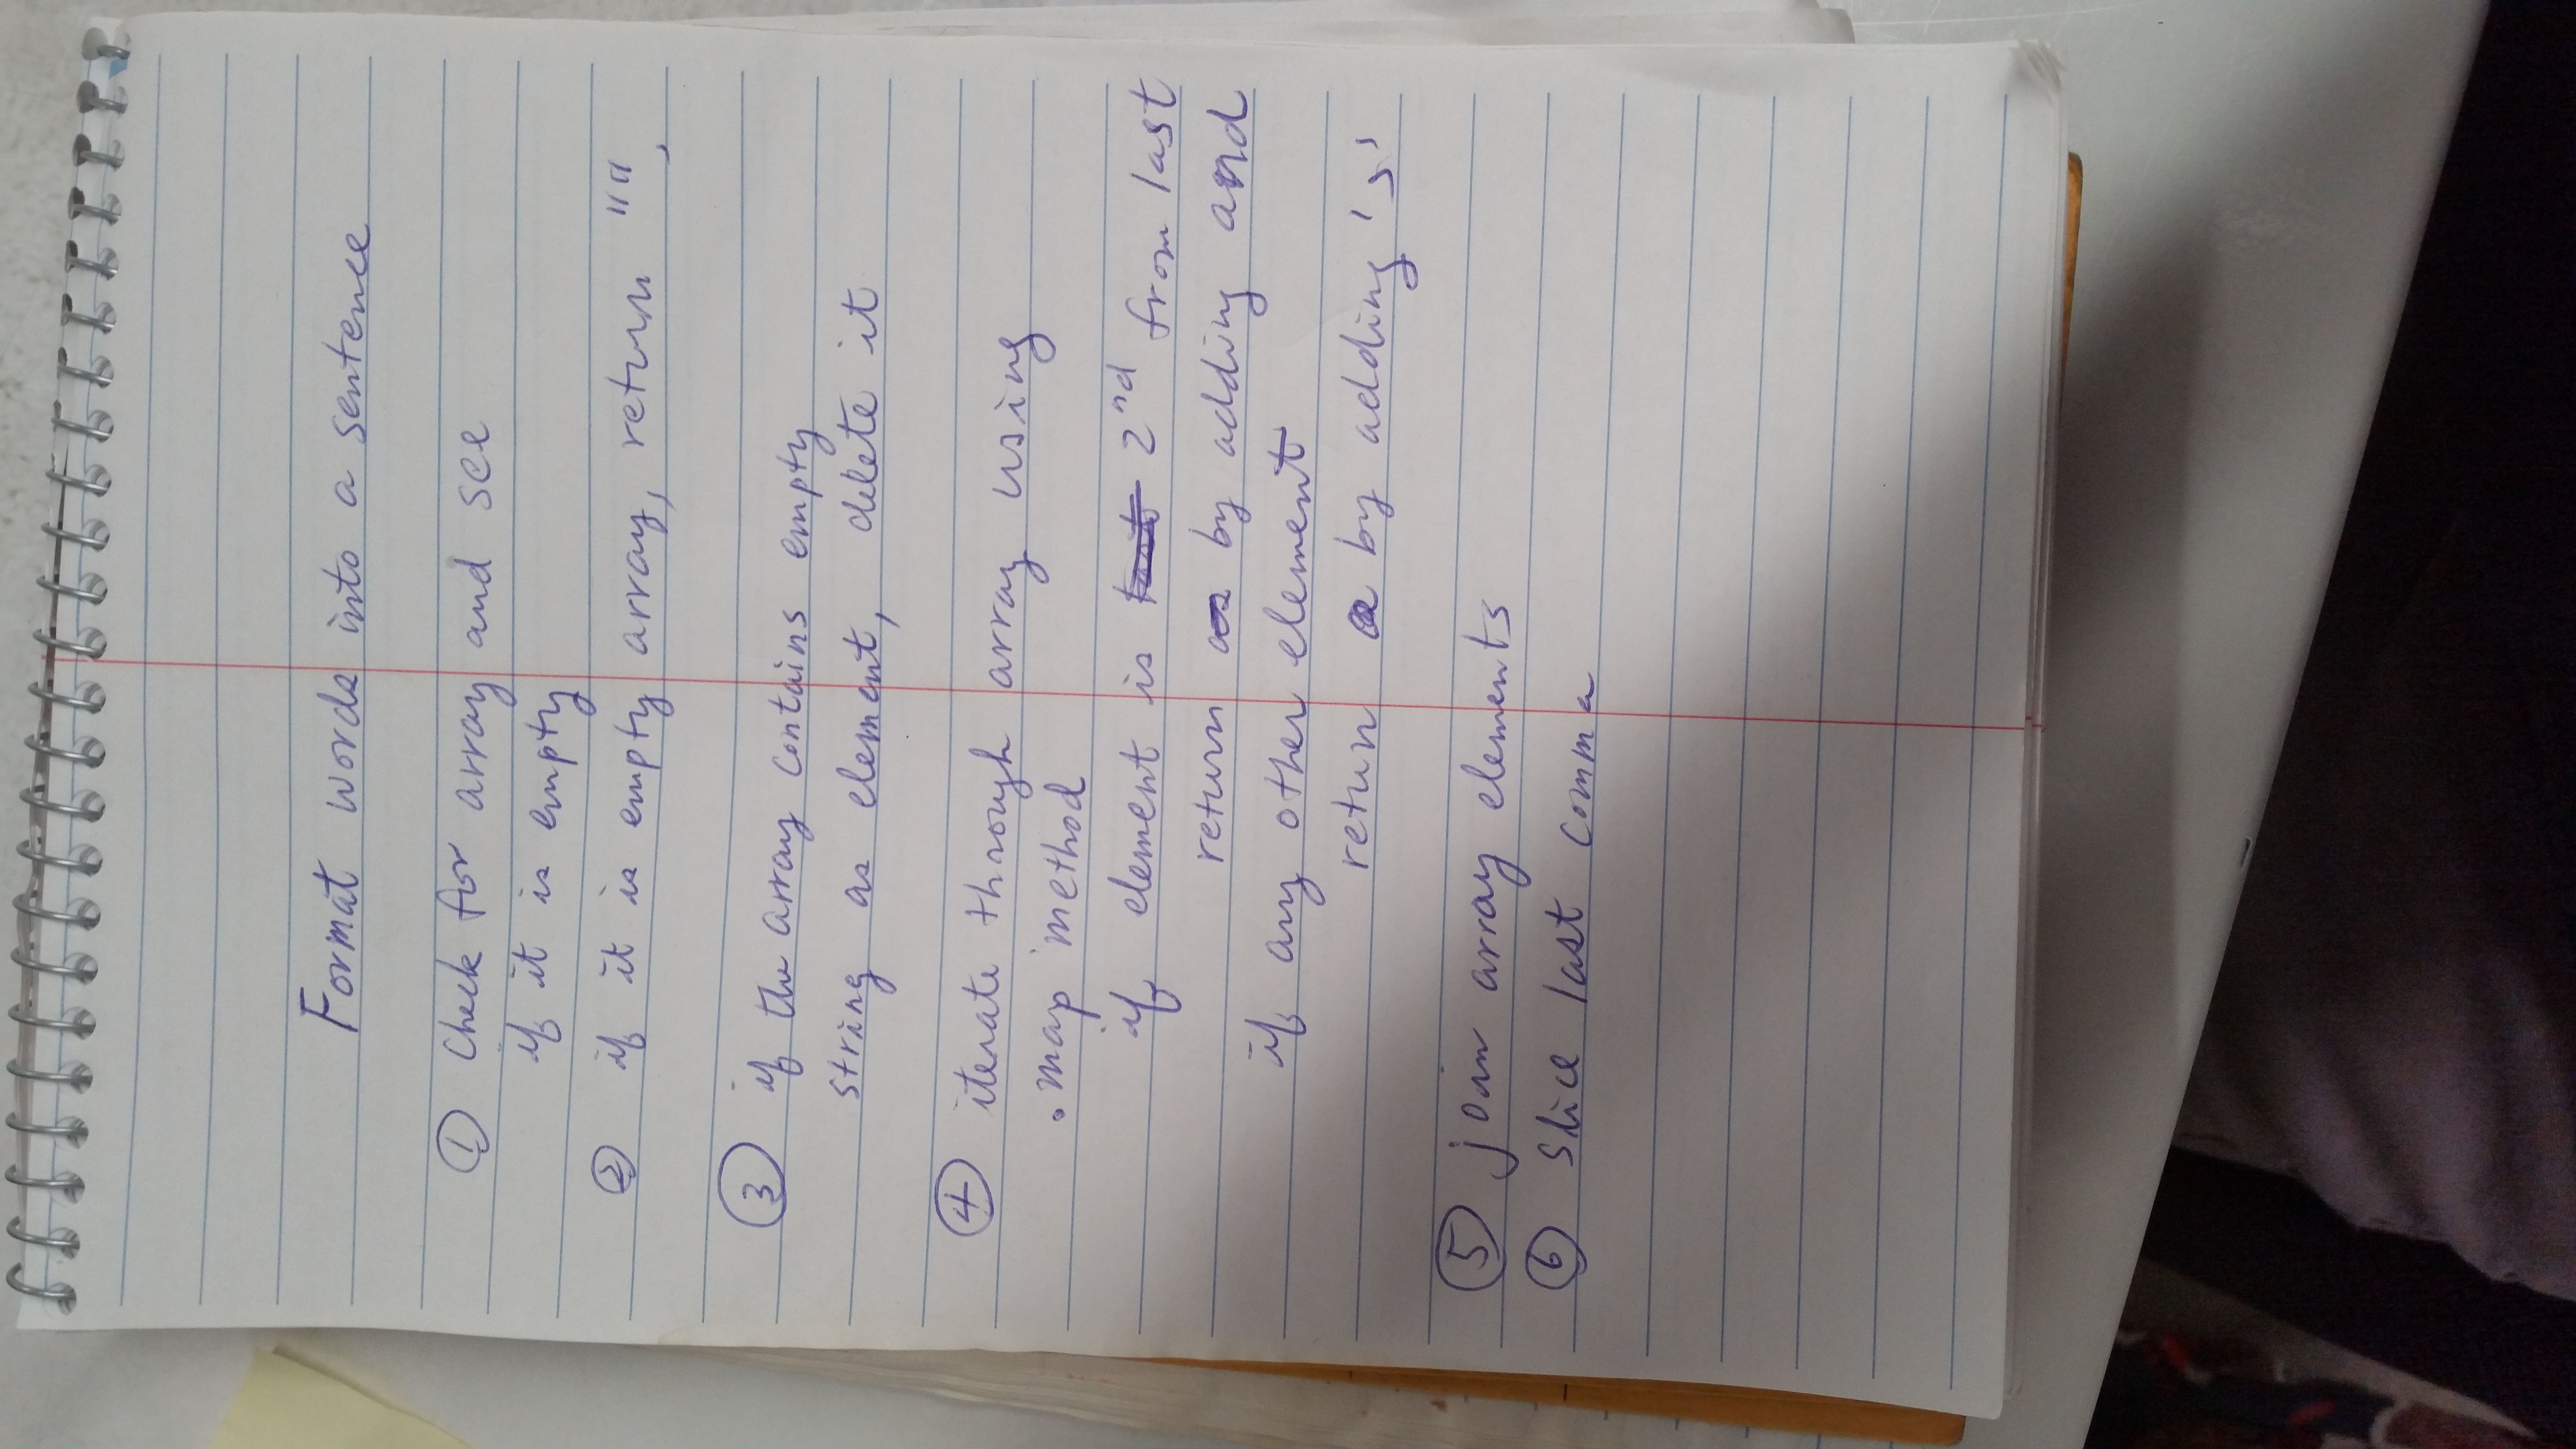 Format words into a sentence
① Check for array and see
if it is empty
② if it is empty array, return "",
③ if the array contains empty
string as element, delete it
④ iterate through array using
.map method
if element is 2nd from last
return by adding and
if any other element
return by adding ','
⑤ join array elements
⑥ slice last comma